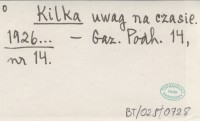 Kilka uwag na czasie.
1926... — Gaz. Podh. 14,
nr 14.
BT/025/0728